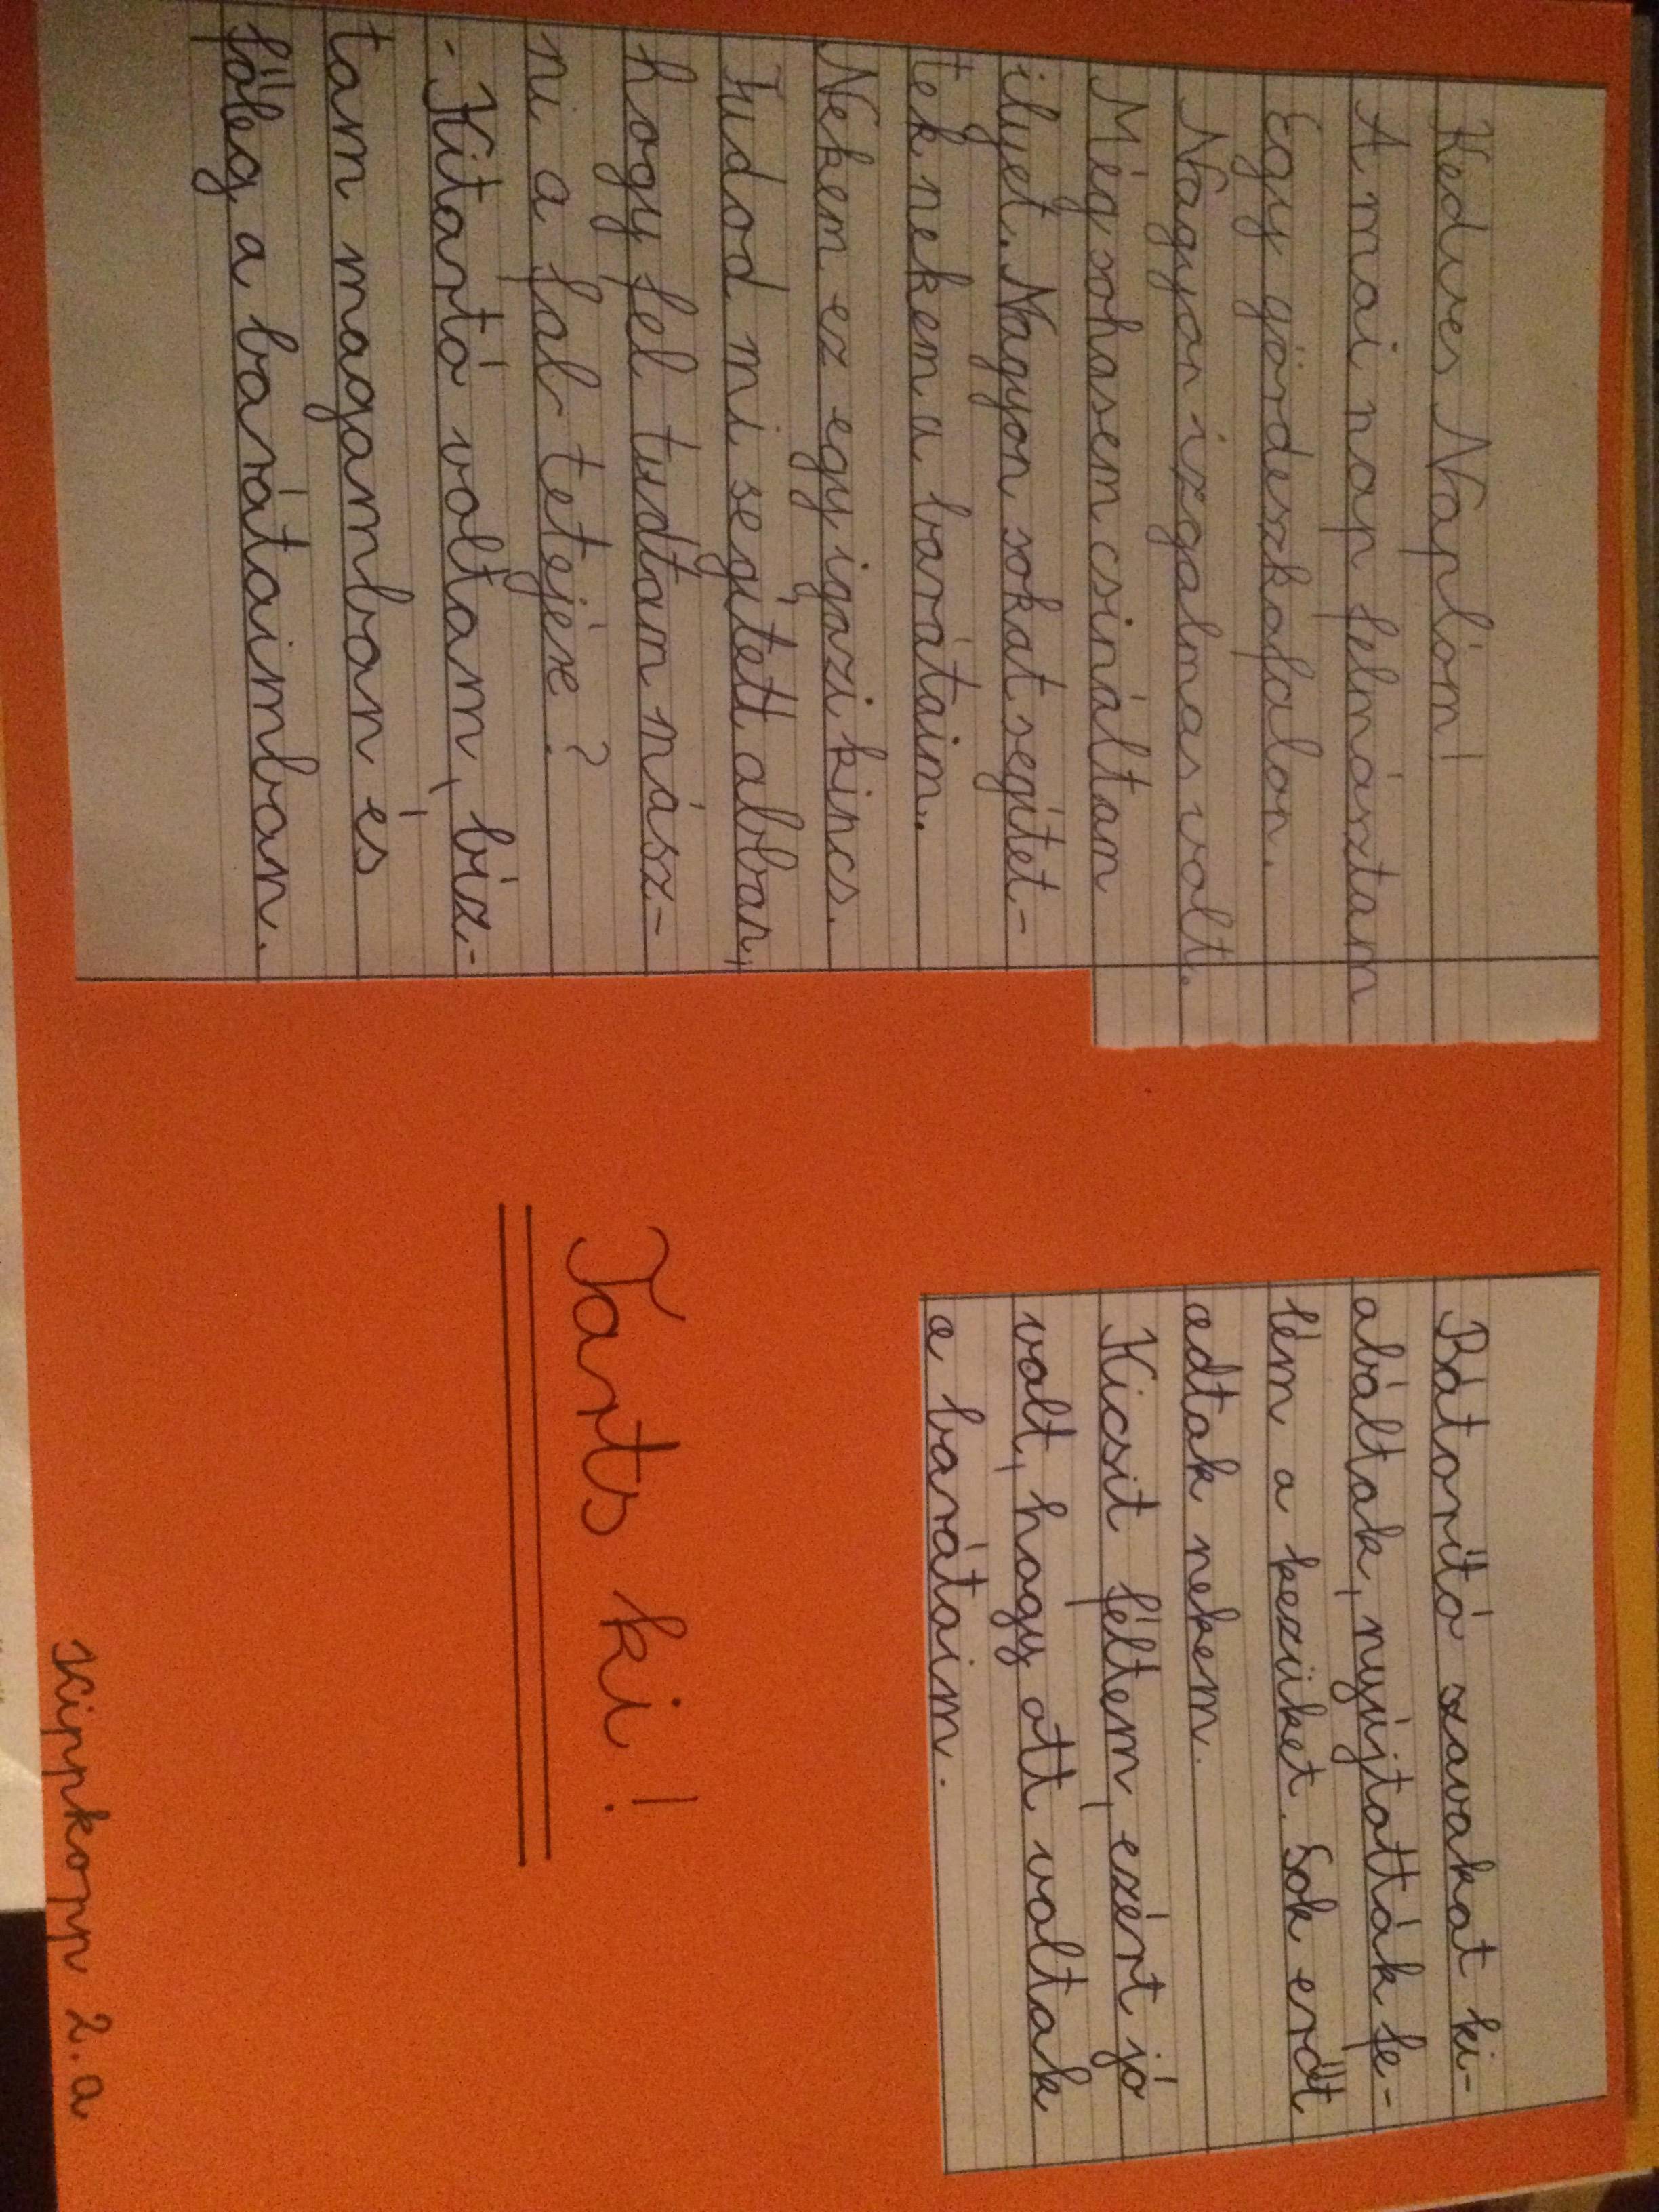 Kedves Naplóm!
A mai nap felmásztam
Egy gördeszkafalon.
Nagyon izgalmas volt.
Még sohasem csináltam
ilyet. Nagyon sokat segítet-
tek nekem a barátaim.
Nekem ez egy igazi kincs.
Tudod mi segített abban,
hogy fel tudtam mász-
ni a fal tetejére?
- Kitartó voltam, bíz-
tam magamban és
főleg a barátaimban.
Bátorító szavakat ki-
abáltak, nyújtották fe-
lém a kezüket. Sok erőt
adtak nekem.
Kicsit féltem, ezért jó
volt, hogy ott voltak
a barátaim.
Tarts ki!
Kippkopp 2.a